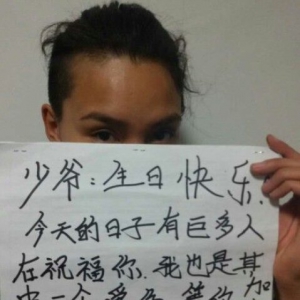 少爷:生日快乐.
今天的日子有巨多人
在祝福你.我也是其
中一个
加